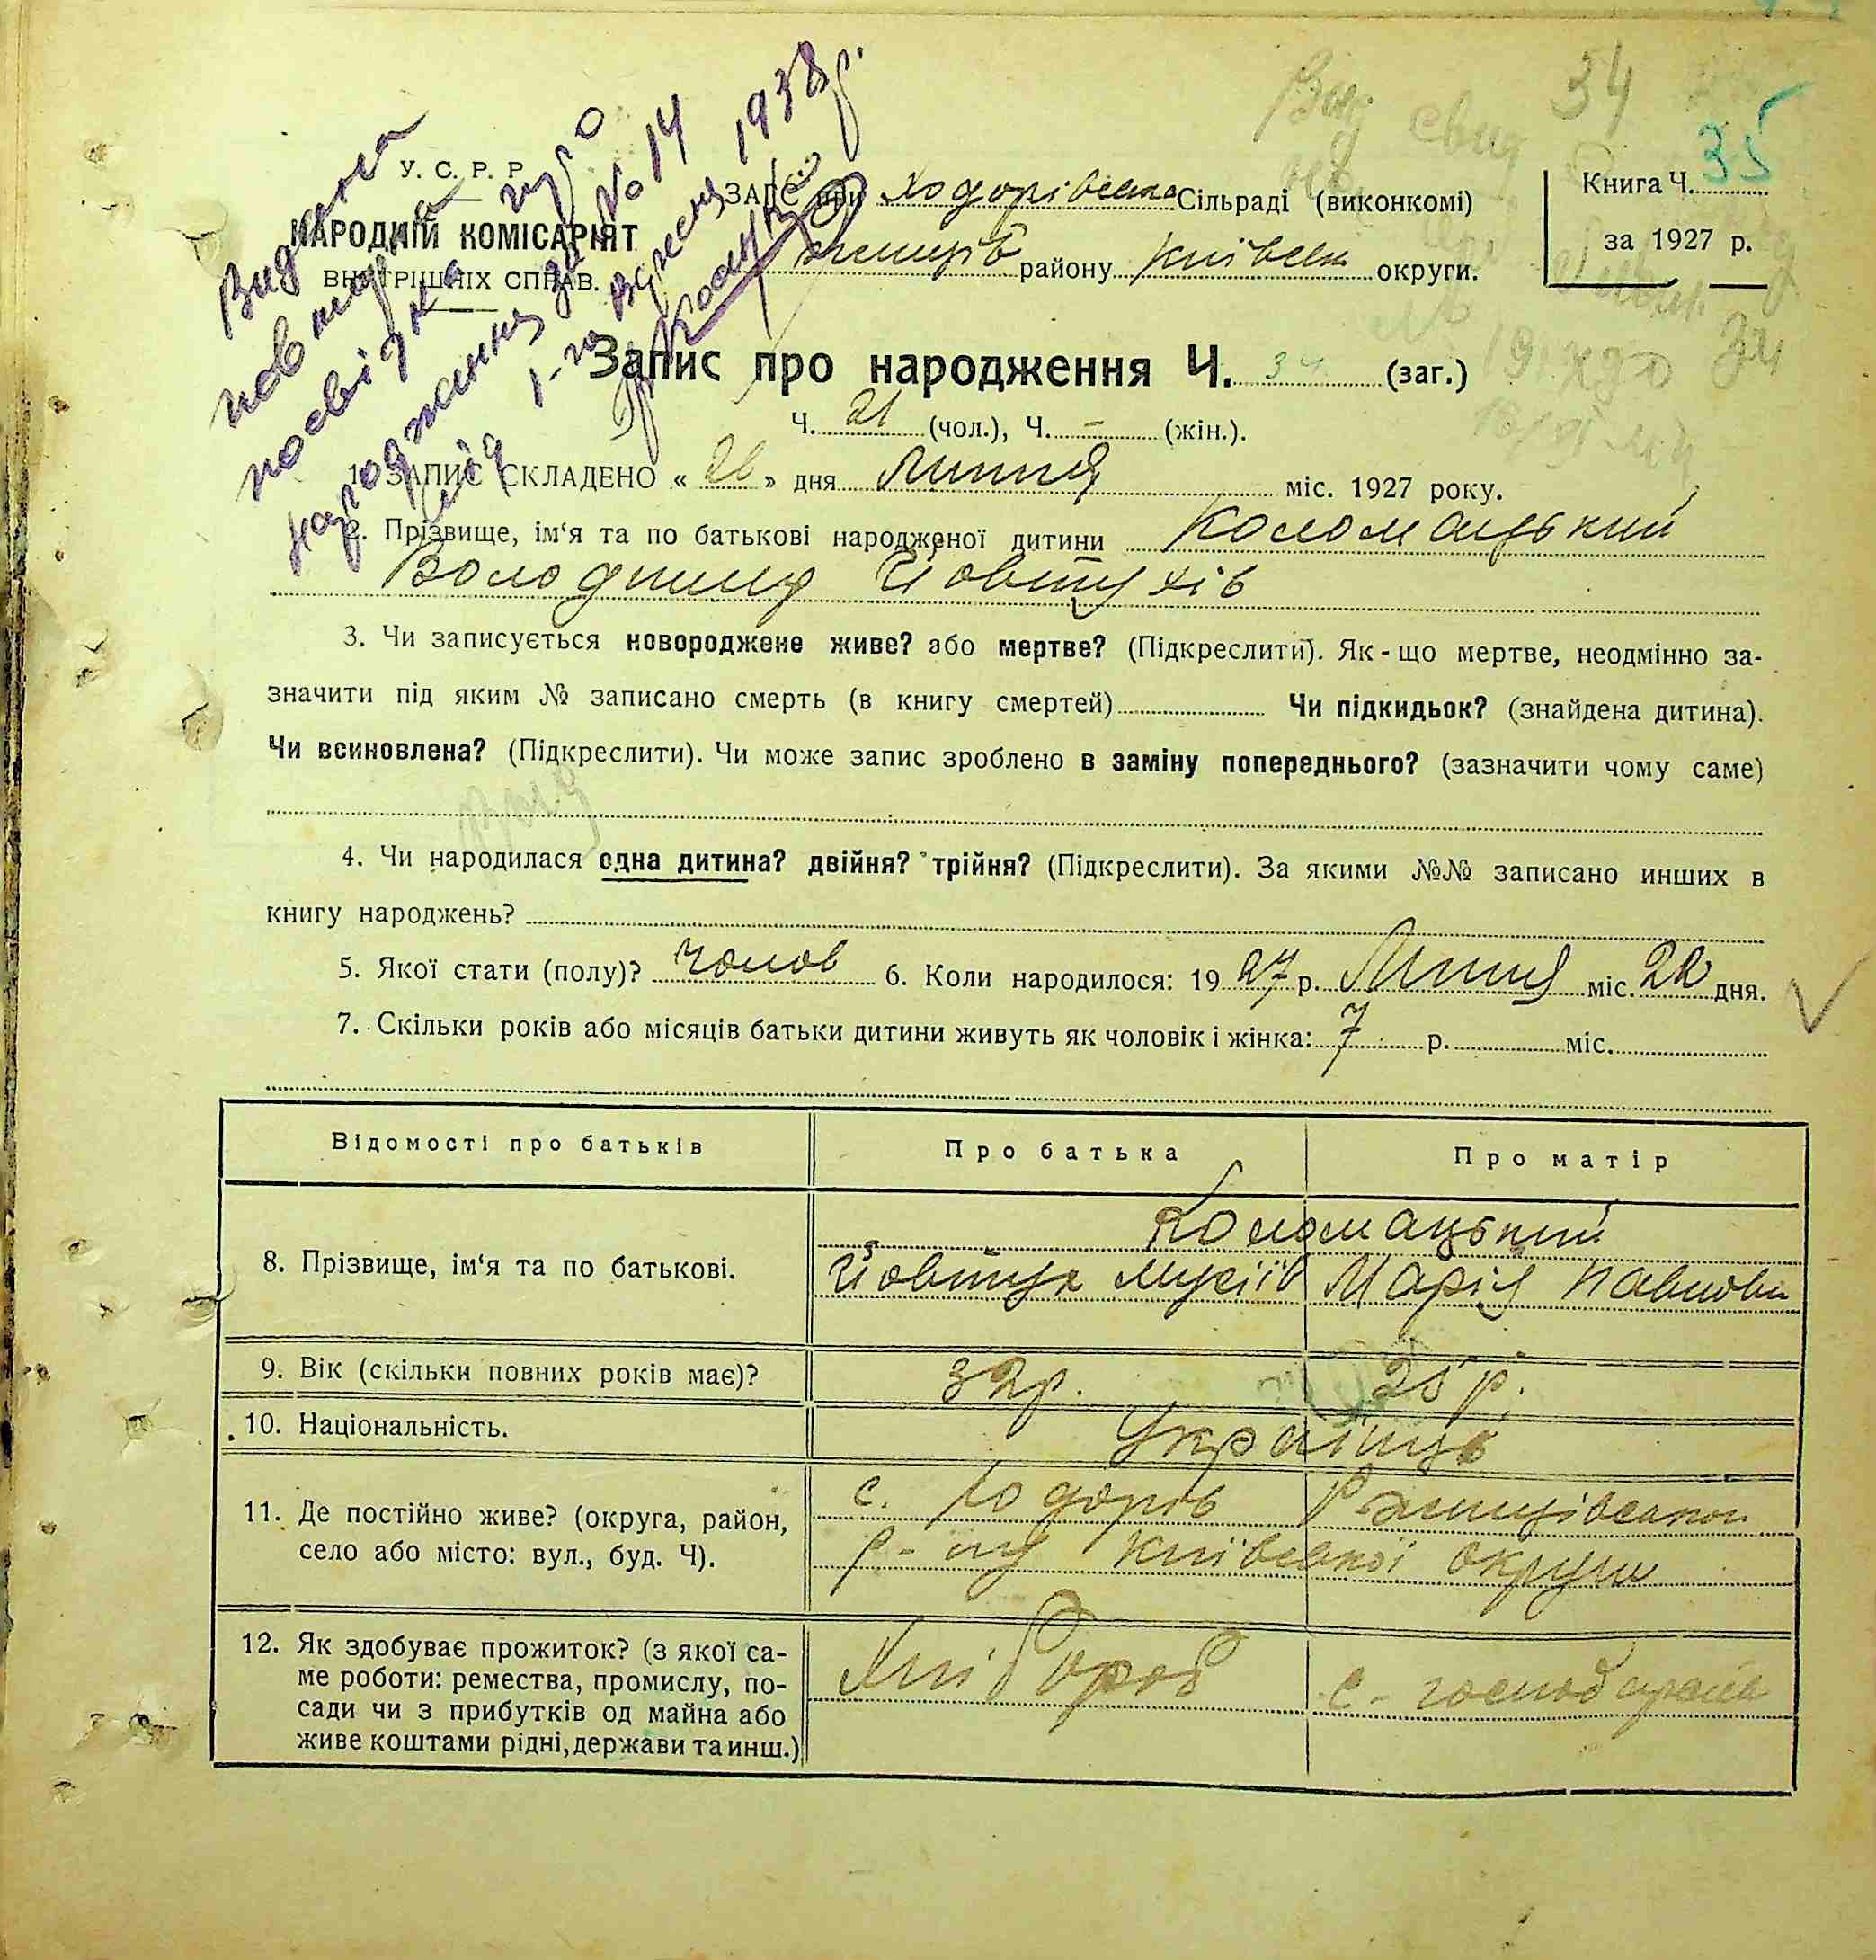 Видана
повторна
посвідка про
народження за № 14
від 1-го вересня 1938 р.
34
35
У. С. Р. Р.
НАРОДНІЙ КОМІСАРІЯТ
ВНУТРІШНІХ СПРАВ.
ЗАГС при Ходорівській Сільраді (виконкомі)
району Київськ округи.
Книга Ч.
за 1927 р.
Запис про народження Ч. 34 (заг.)
Ч. 21 (чол.), Ч. - (жін.).
1. ЗАПИС СКЛАДЕНО « 26 » дня Липня міс. 1927 року.
2. Прізвище, ім‘я та по батькові народженої дитини Коломацький
Володимир Йовтухів
3. Чи записується новороджене живе? або мертве? (Підкреслити). Як-що мертве, неодмінно за-
значити під яким № записано смерть (в книгу смертей) Чи підкидьок? (знайдена дитина).
Чи всиновлена? (Підкреслити). Чи може запис зроблено в заміну попереднього? (зазначити чому саме)
4. Чи народилася одна дитина? двійня? трійня? (Підкреслити). За якими №№ записано инших в
книгу народжень?
5. Якої стати (полу)? чолов 6. Коли народилося: 1927 р. Липня міс. 22 дня.
7. Скільки років або місяців батьки дитини живуть як чоловік і жінка: 7 р. міс.
Відомості про батьків Про батька Про матір
8. Прізвище, ім‘я та по батькові. Коломацький
Йовтух Мусіїв Марія Павлова
9. Вік (скільки повних років має)? 32 р. 25 р.
10. Національність. Українць
11. Де постійно живе? (округа, район,
село або місто: вул., буд. Ч).
с. Ходорів Ржищівськои
р-ну Київської округи
12. Як здобуває прожиток? (з якої са-
ме роботи: ремества, промислу, по-
сади чи з прибутків од майна або
живе коштами рідні, держави та инш.)
Хлібороб с-господарств